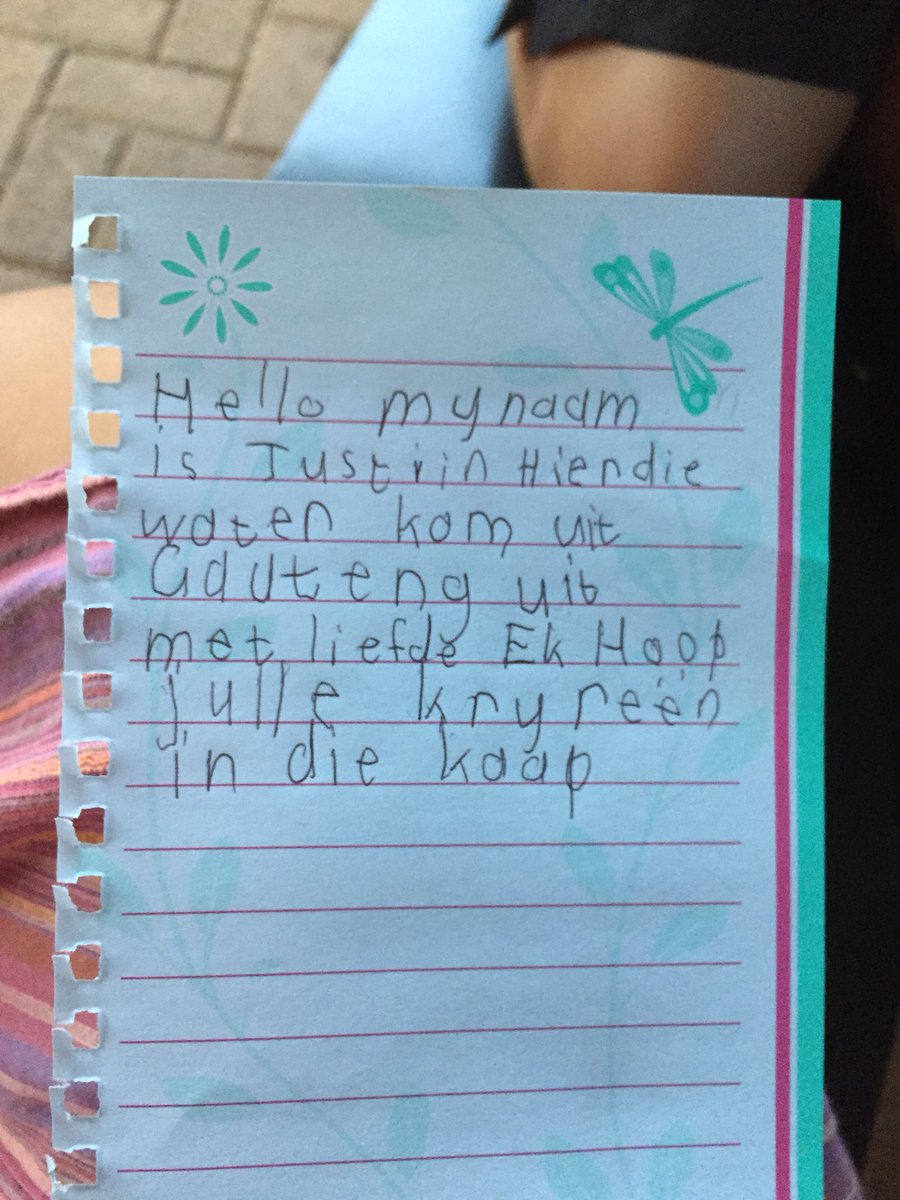 Hello my naam
is Justin Hierdie
water kom uit
Gauteng uit
met liefde Ek Hoop
julle kry reën
in die kaap